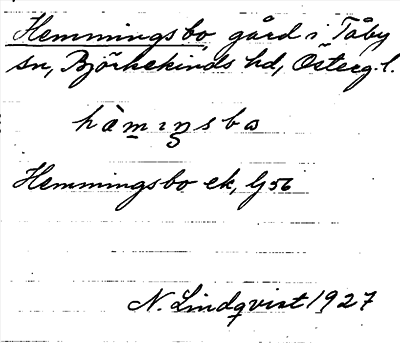 Hemmingsbo, gård i Tåby
sn, Björkekinds hd, Österg. l.
hὰm̲ıŋsbo
Hemmingsbo ek, G 56
N. Lindqvist 1927